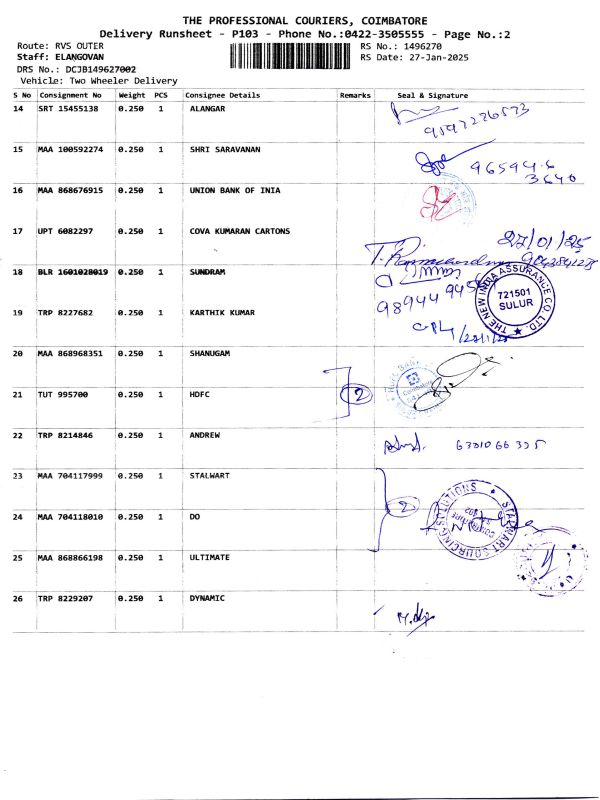 THE PROFESSIONAL COURIERS, COIMBATORE
Delivery Runsheet - P103 - Phone No.:0422-3505555 - Page No.:2
Route: RVS OUTER RS No.: 1496270
Staff: ELANGOVAN RS Date: 27-Jan-2025
DRS No.: DCJB149627002
Vehicle: Two Wheeler Delivery
S No Consignment No Weight PCS Consignee Details Remarks Seal & Signature
14 SRT 15455138 0.250 1 ALANGAR
15 MAA 100592274 0.250 1 SHRI SARAVANAN
96594
3640
16 MAA 868676915 0.250 1 UNION BANK OF INIA
17 UPT 6082297 0.250 1 COVA KUMARAN CARTONS
27/01/25
18 BLR 1601028019 0.250 1 SUNDRAM
98944
THE NEW INDIA ASSURANCE CO. LTD.
721501
SULUR
19 TRP 8227682 0.250 1 KARTHIK KUMAR
20 MAA 868968351 0.250 1 SHANUGAM
21 TUT 995700 0.250 1 HDFC
2
22 TRP 8214846 0.250 1 ANDREW
23 MAA 704117999 0.250 1 STALWART
2
STALWART SOURCING SOLUTIONS
24 MAA 704118010 0.250 1 DO
25 MAA 868866198 0.250 1 ULTIMATE
26 TRP 8229207 0.250 1 DYNAMIC